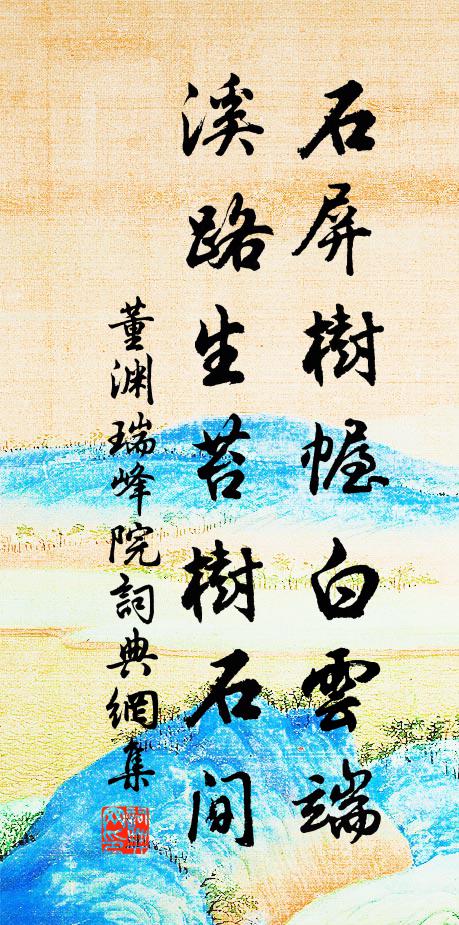 石屏樹幄白雲端
溪路生苔樹石間
董淵瑞峰院詞典網集